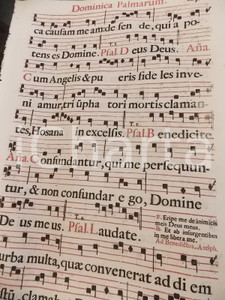 Dominica Palmarum.
ca causam me am: de fen de, qui a po
tens es Domine. Psal. Deus Deus. Aña.
Cum Angelis & pu eris fide les inve-
ni amur, tri ûpha tori mortis claman-
tes, Hosana in excelsis. Psal. B enedicite.
Aña. Confundantur, qui me persequun-
tur, & non confundar e go, Domine
De us me us. Psal. Laudate.
℣. Eripe me de inimicis
meis Deus meus.
℟. Et ab insurgentibus
in me libera me.
Ad Benedictus, Antiph.
urba multa, quæ convenerat ad di em
stū, clamab